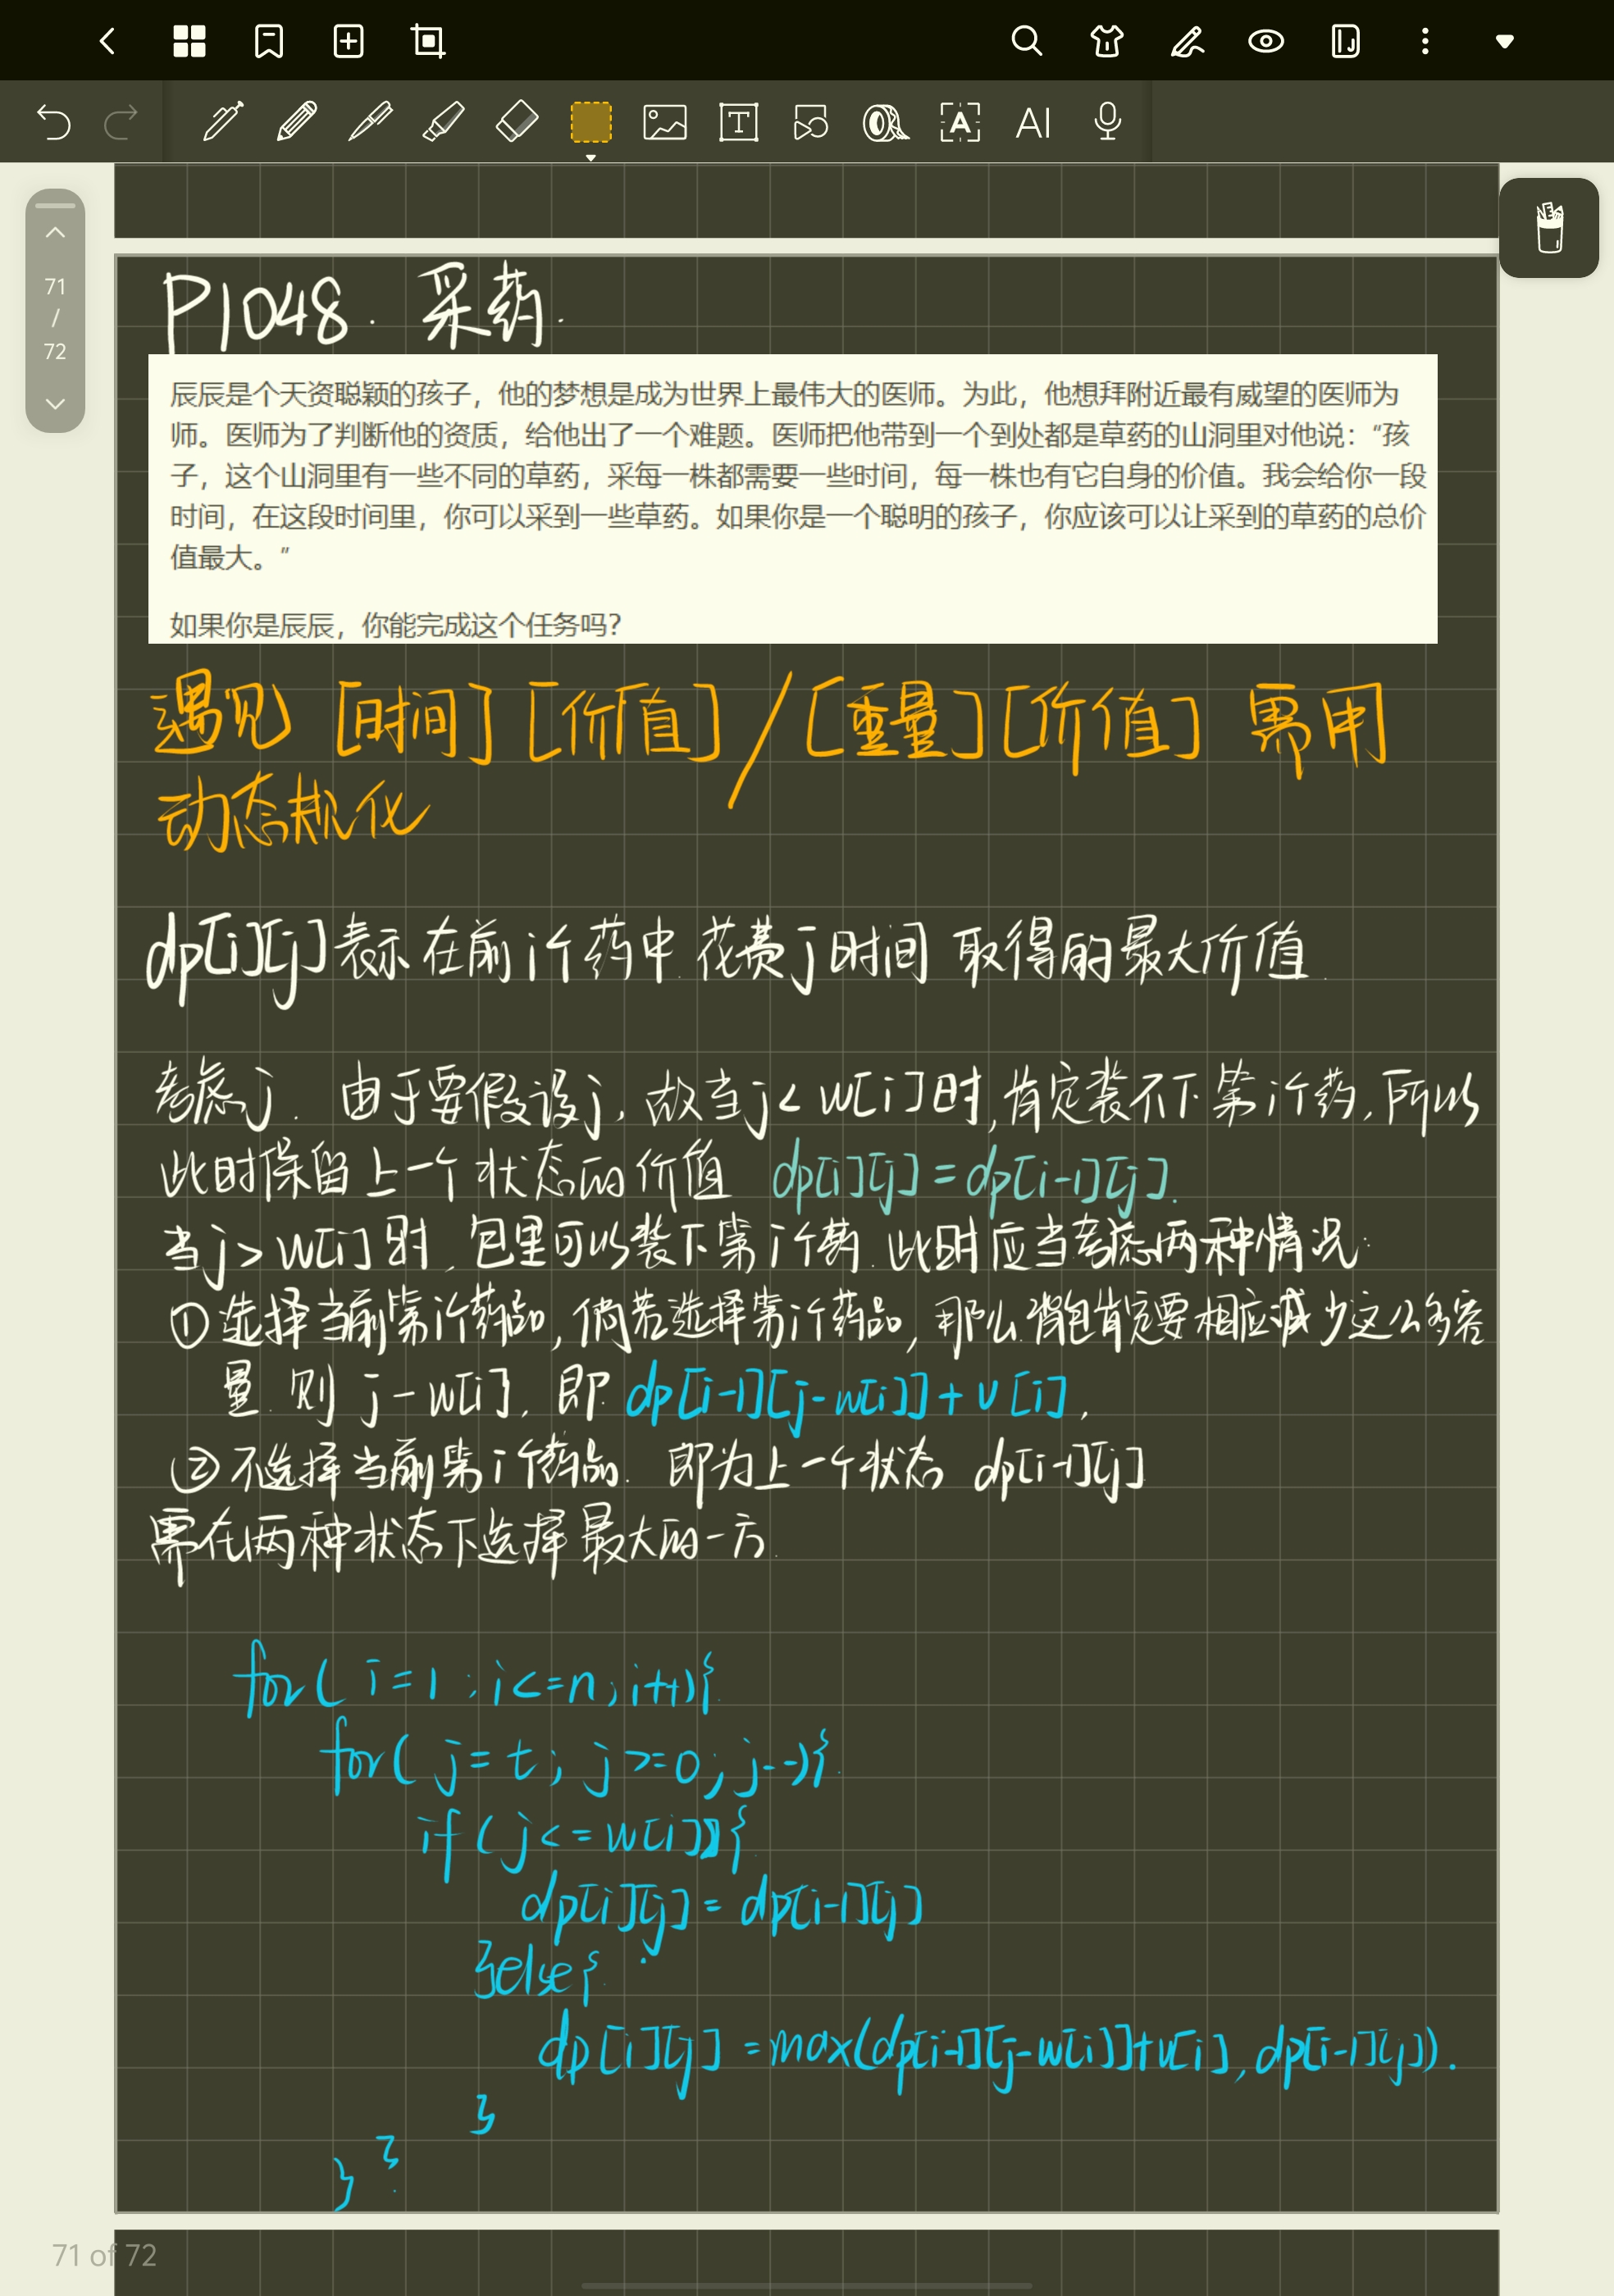 71
/
72
P1048. 采药.
辰辰是个天资聪颖的孩子，他的梦想是成为世界上最伟大的医师。为此，他想拜附近最有威望的医师为
师。医师为了判断他的资质，给他出了一个难题。医师把他带到一个到处都是草药的山洞里对他说：“孩
子，这个山洞里有一些不同的草药，采每一株都需要一些时间，每一株也有它自身的价值。我会给你一段
时间，在这段时间里，你可以采到一些草药。如果你是一个聪明的孩子，你应该可以让采到的草药的总价
值最大。”
如果你是辰辰，你能完成这个任务吗？
遇见 [时间][价值]/[重量][价值] 需用
动态规化
dp[i][j]表示在前i个药中.花费j时间 取得的最大价值.
考虑j. 由于要假设j, 故当j< w[i]时,肯定装不下第i个药,所以
此时保留上一个状态的价值 dp[i][j]=dp[i-1][j].
当j> w[i]时,包里可以装下第i个药.此时应当考虑两种情况:
①选择当前第i个药品,倘若选择第i个药品,那么背包肯定要相应减少这么多容
量.则 j-w[i], 即 dp[i-1][j-w[i]]+v[i],
②不选择当前第i个药品. 即为上一个状态 dp[i-1][j]
需在两种状态下选择最大的一方.
for( i=1;i<=n;i++){
for( j=t; j>=0;j--){
if(j<=w[i]){
dp[i][j]=dp[i-1][j]
}else{
dp[i][j]=max(dp[i-1][j-w[i]]+v[i],dp[i-1][j]).
}
}
}
71 of 72